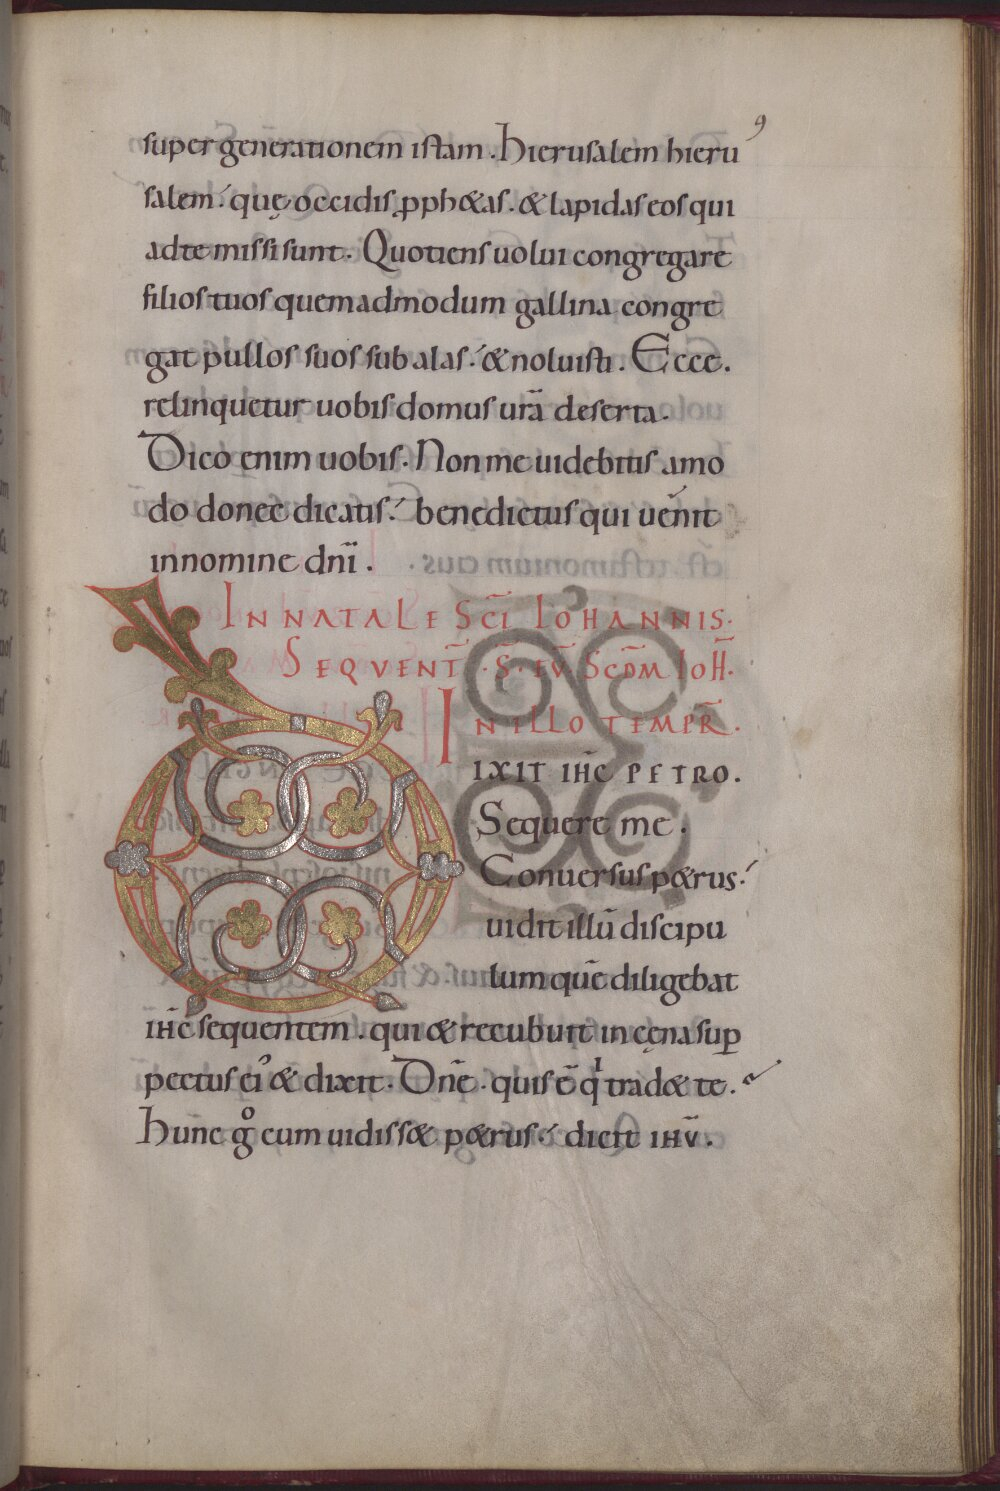 9
super generationem istam. Hierusalem hieru
salem. quę occidis ꝓph&as. & lapidas eos qui
ad te missi sunt. Quotiens uolui congregare
filios tuos quemadmodum gallina congre
gat pullos suos sub alas. & noluisti. Ecce.
relinquetur uobis domus ur̄a deserta.
Dico enim uobis. Non me uidebitis amo
do donec dicatis. benedictus qui uenit
in nomine dn̄i.
IN NATALE SC̄I IOHANNIS.
SEQVENT̄. S̄. EV̄ SCD̄M IOH̄.
IN ILLO TEMPR̄.
DIXIT IH̄C PETRO.
Sequere me.
Conuersus p&rus.
uidit illū discipu
lum quē diligebat
ih̄c sequentem. qui & recubuit in cęna suꝑ
pectus ei᾽ & dixit. Dn̄e. quis ē qͥ trad& te.
Hunc gͦ cum uidiss& p&rus. dicit ih̄v.